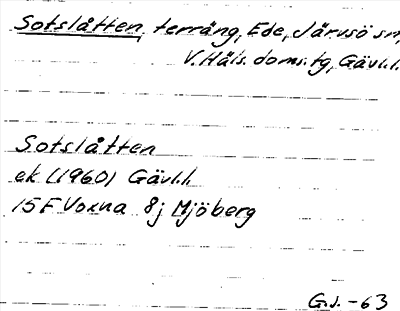 Sotslåtten, terräng, Ede, Järvsö sn,
V. Häls. doms. tg, Gävl.l.
Sotslåtten
ek (1960) Gävl.l.
15F Voxna 8j Mjöberg
G.J. -63